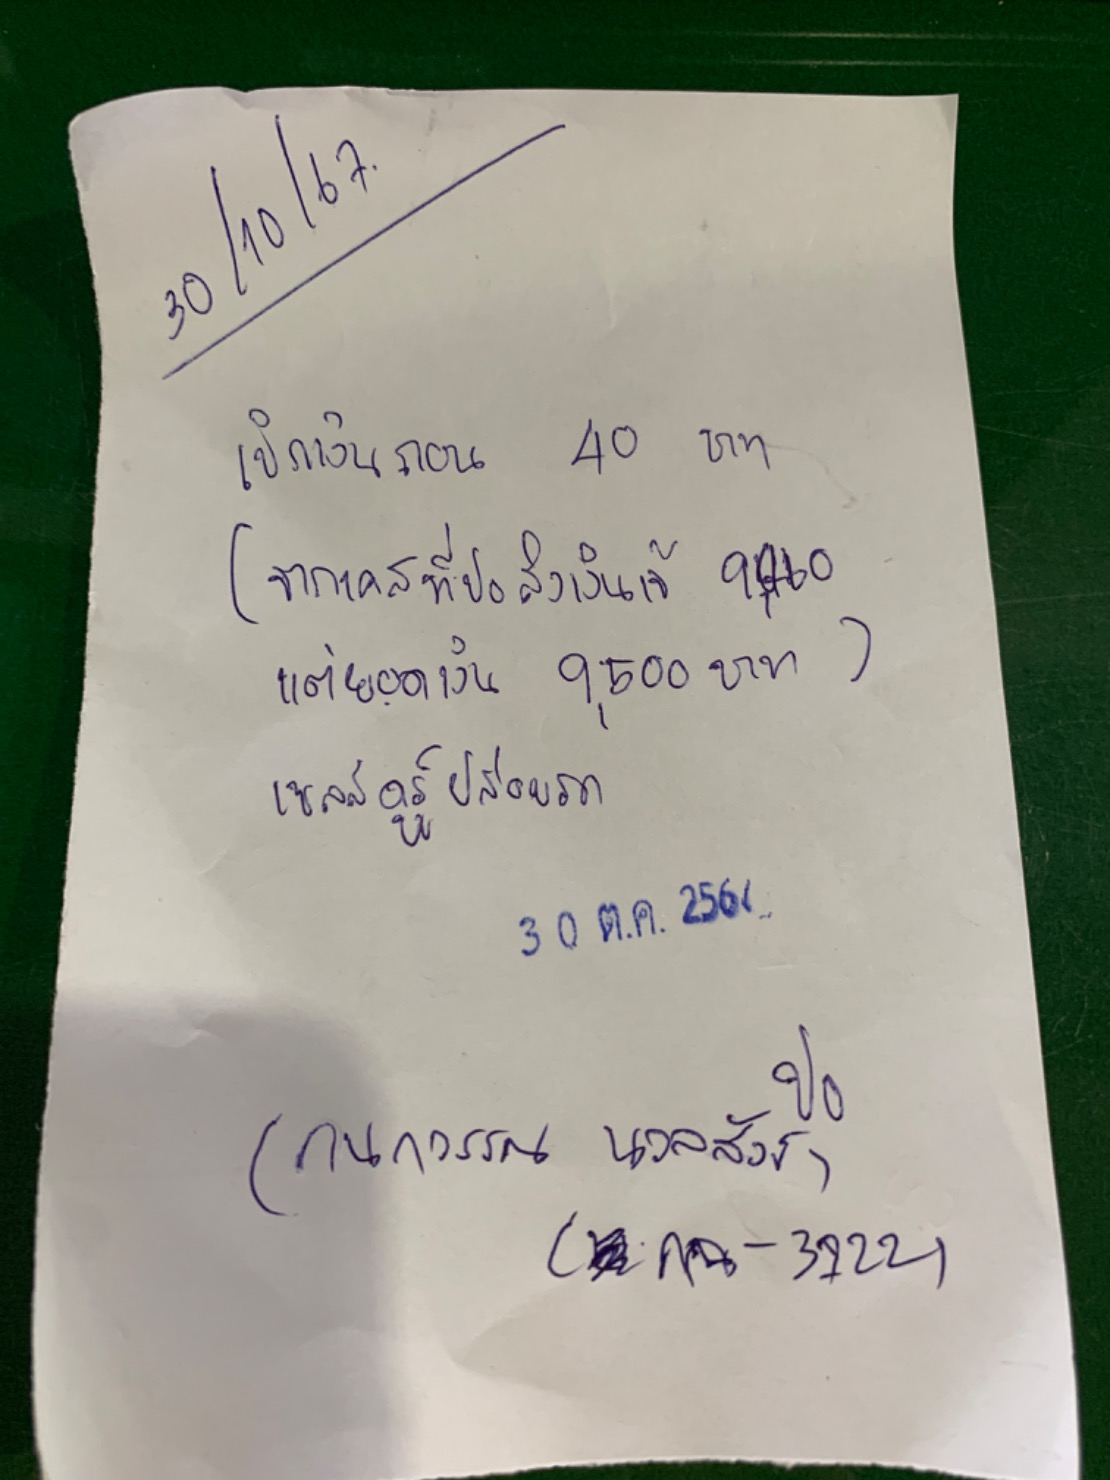 30/10/67.
เบิกเงินทอน 40 บาท
(จากเคสที่ปอ ส่งเงินเจ้
แต่ยอดเงิน 9,500 บาท)
เซลส์
30 ต.ค. 256
ปอ
(กนกวรรณ นวลสังข์)
กน-3722)